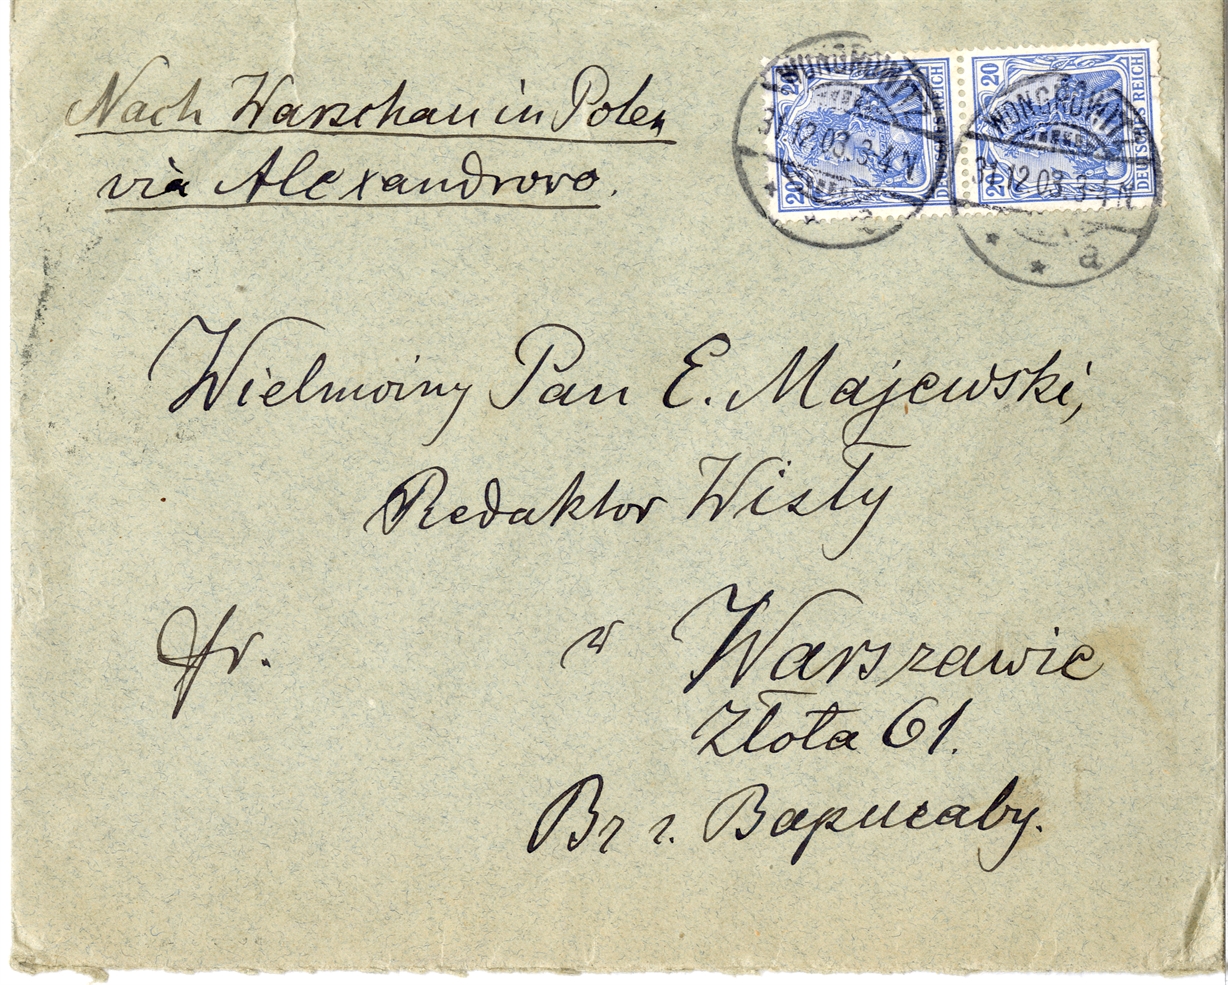 Nach Warschau in Polen
via Alexandrowo.
WONGROWITZ
31.12.03.3-4 N
a
20
20
DEUTSCHES REICH
WONGROWITZ
31.12.03.3-4 N
a
20
20
DEUTSCHES REICH
Wielmożny Pan E. Majewski,
Redaktor Wisły
fr.
w Warszawie
Złota 61.
Вг г. Варшаву.